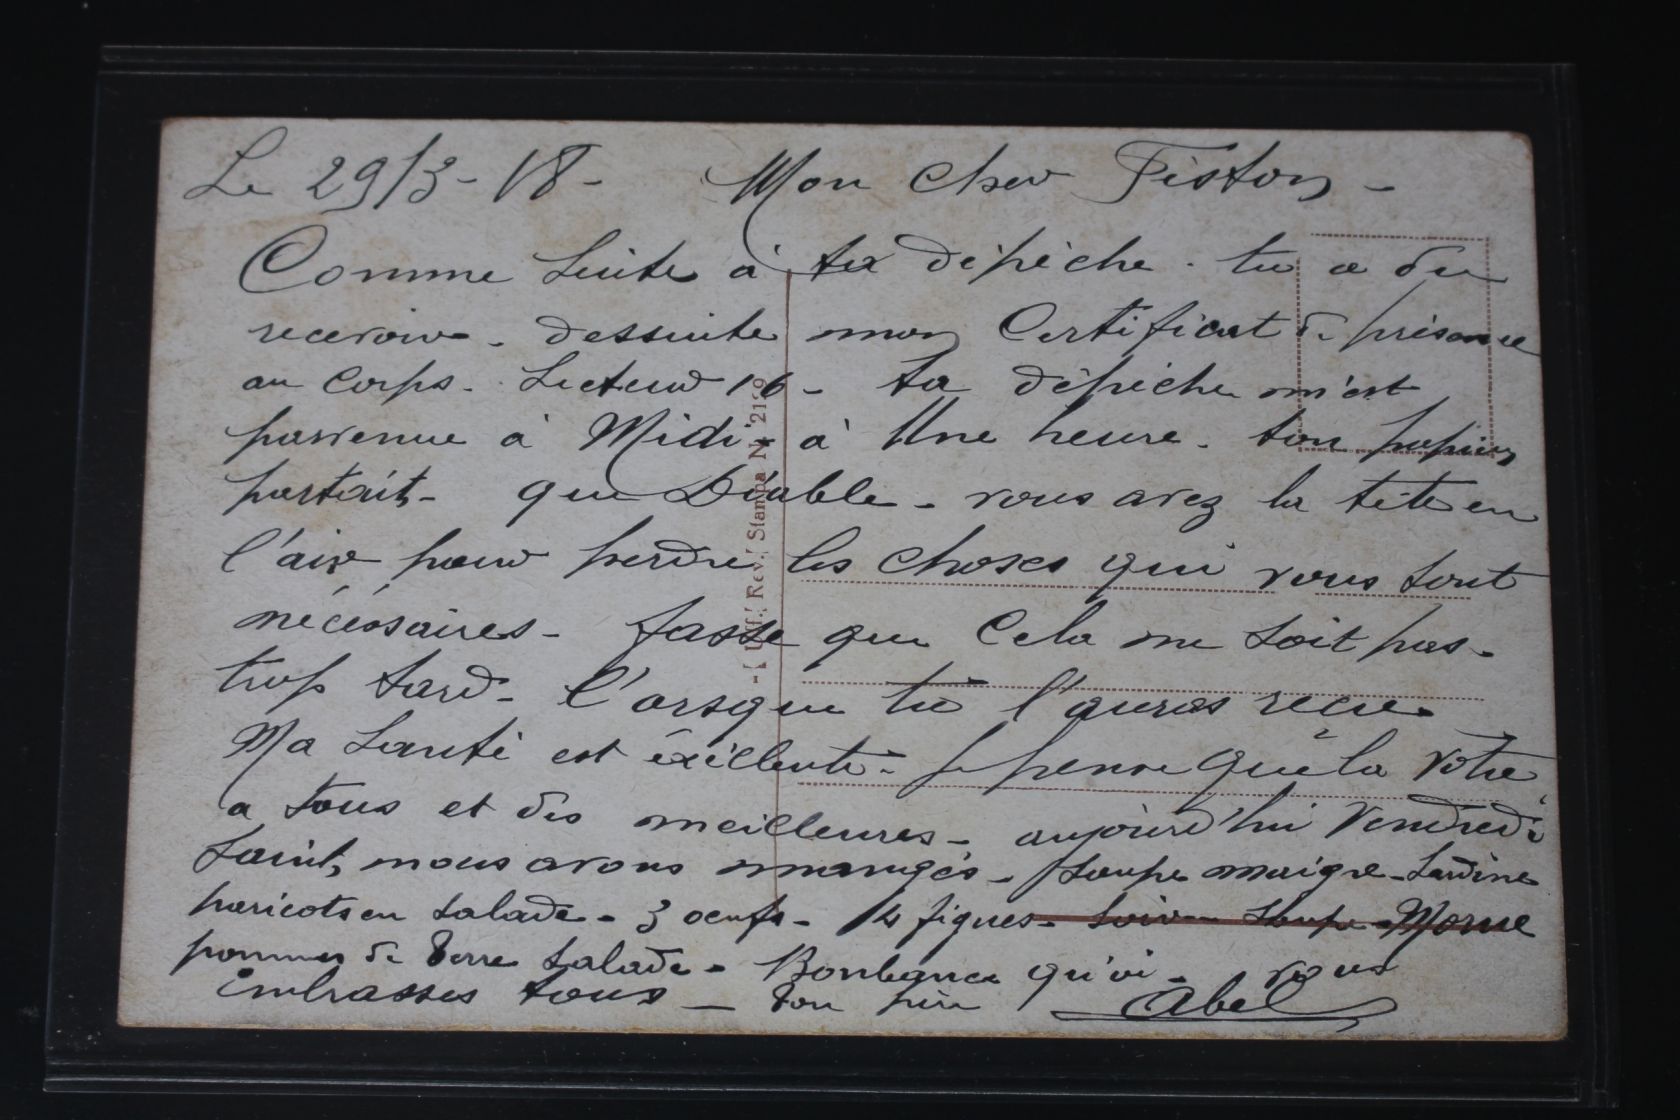 Le 29/3 - 18 - Mon cher Fiston -
Comme suite à ta dépèche - tu a du
recevoir - dessuite mon Certificat de présence
au Corps - Secteur 16 - ta dépèche m'est
parvenue à Midi - à Une heure - ton papier
partait - que Diable - vous avez la tête en
l'air pour perdre les choses qui vous sont
nécéssaires - fasse que Cela ne soit pas -
trop tard - l'orsque tu l'auras reçue -
Ma Santé est éxcéllente - je pense que la votre
a tous et des meilleures - aujourd'hui Vendredi
Saint, nous avons mangés - soupe maigre - Sardine
haricots en salade - 3 oeufs - 4 figues - soir - Soupe - Morue
pommes de terre Salade - vous
Embrasses tous - ton père Abel
- [ Uff. Rev. Stampa N. 2199